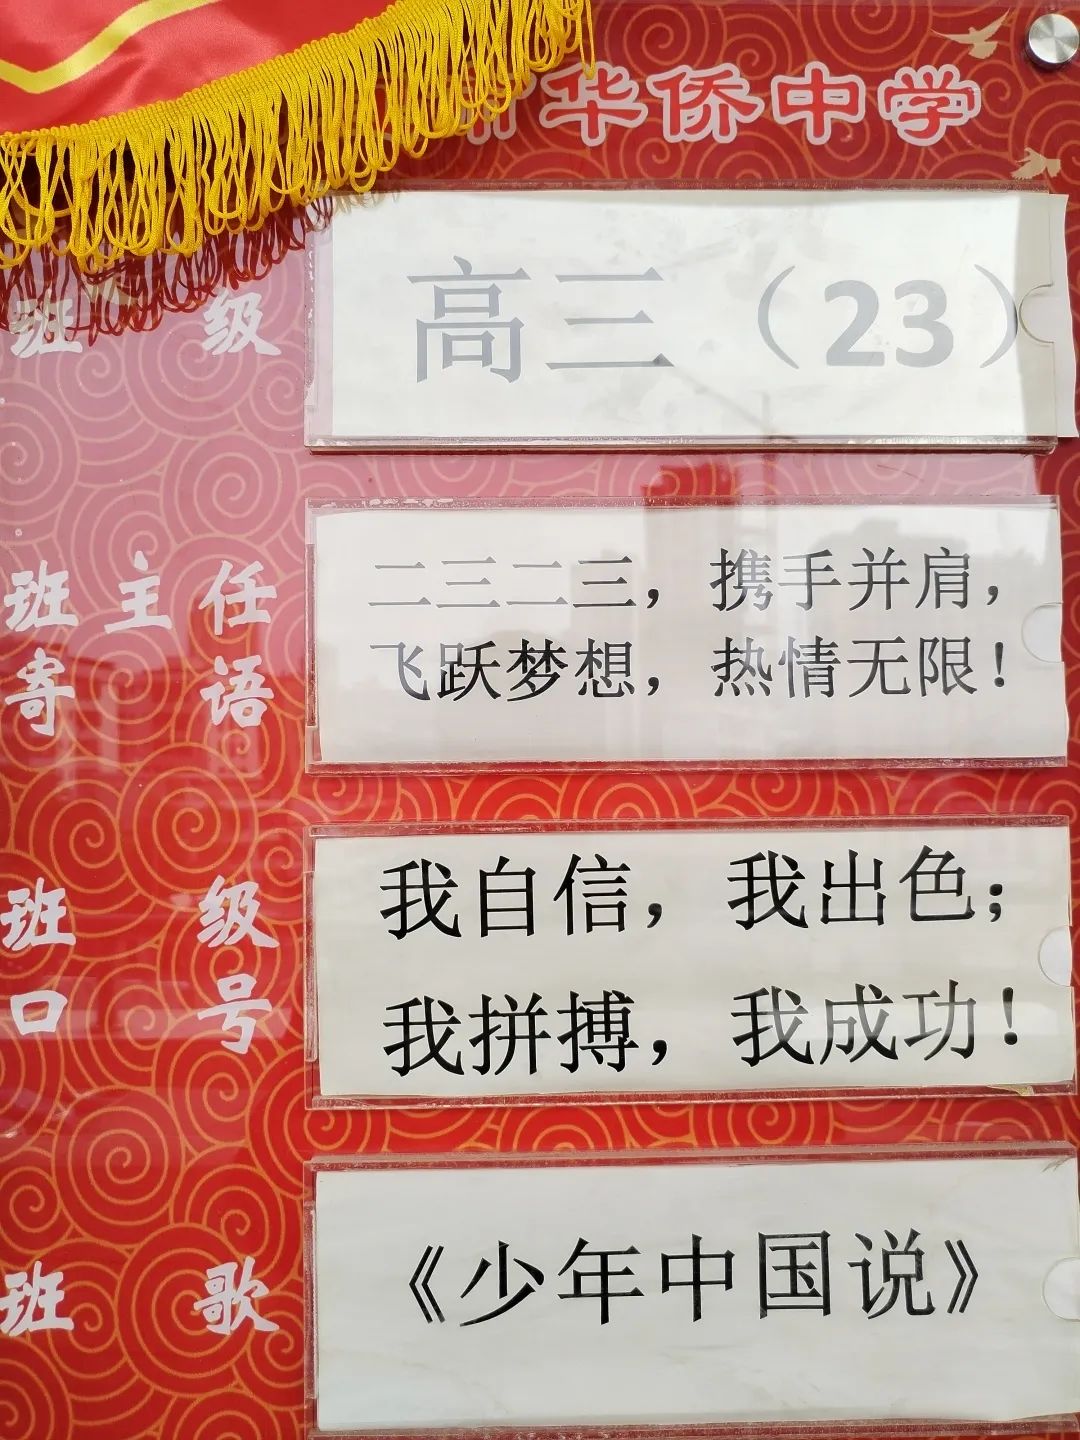 华侨中学
班级 高三（23）
班主任寄语
二三二三，携手并肩，
飞跃梦想，热情无限！
班级口号
我自信，我出色；
我拼搏，我成功！
班歌 《少年中国说》